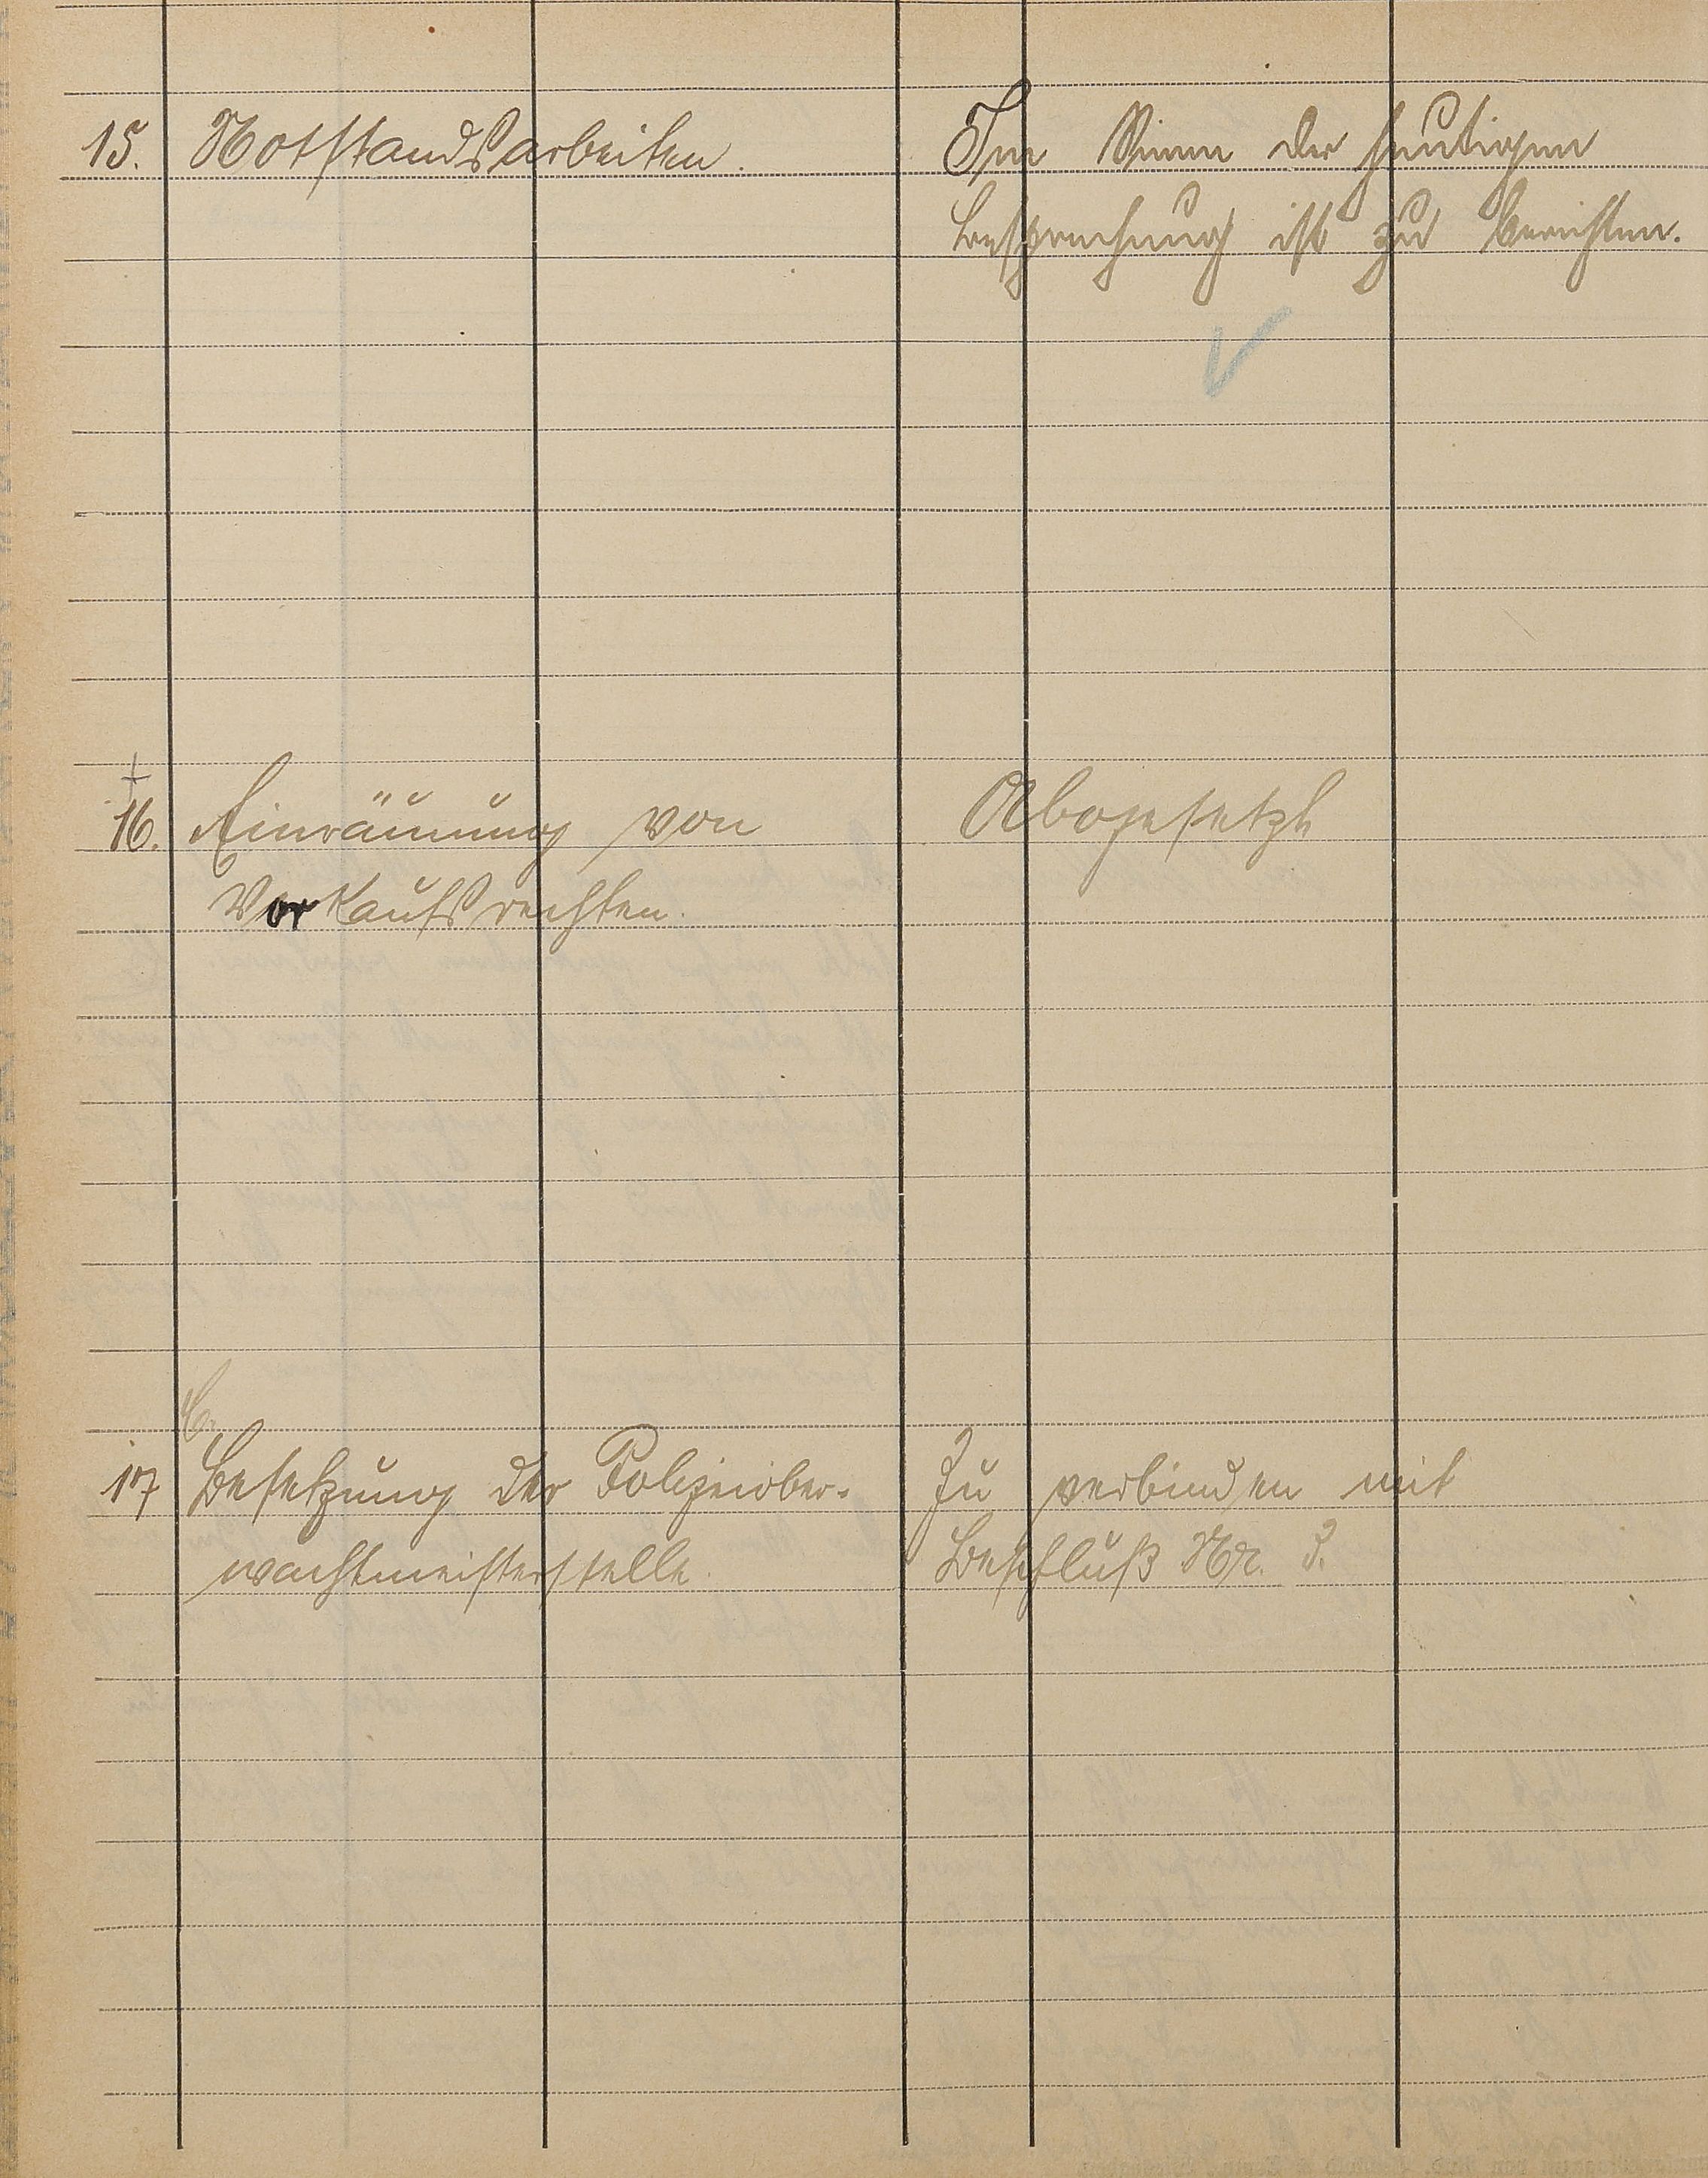 15. Notstandsarbeiten.
Im Sinne der heutigen
Besprechung ist zu berichten.
16. Einräumung von
Vorkaufsrechten.
Abgesetzt
17 Besetzung der Polizeiober-
wachtmeisterstelle.
Zu verbinden mit
Beschluß Nr. 3.